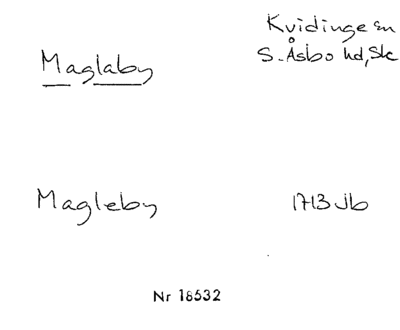 Kvidinge sn
Maglaby
S. Åsbo hd, Sk
Magleby
1713 Jb
Nr 18532